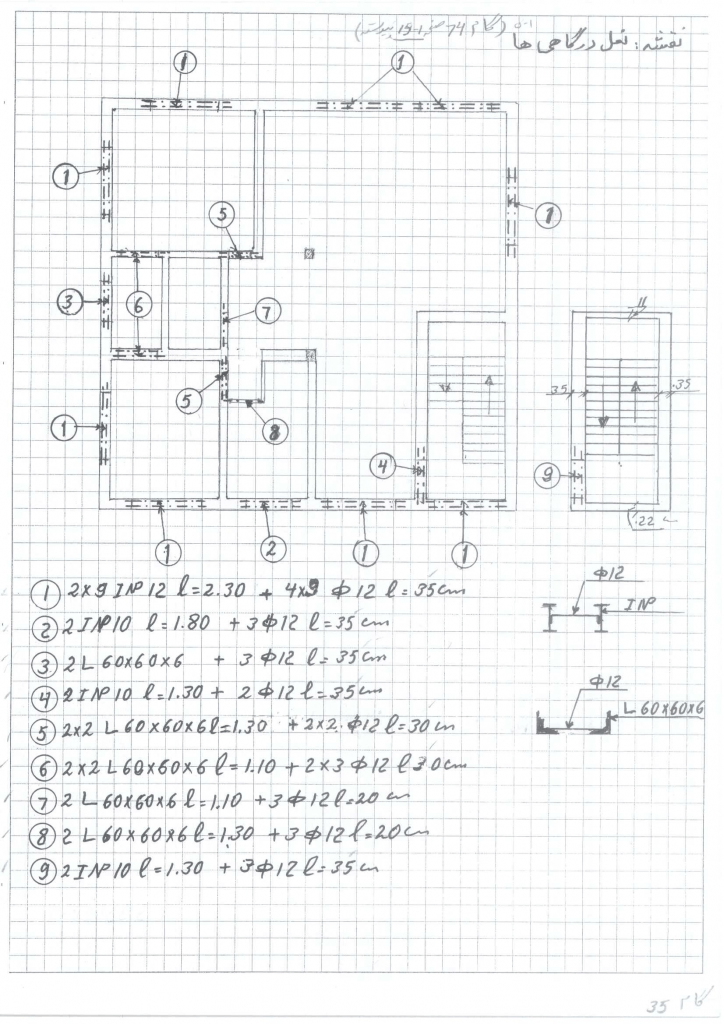 نقشه: نعل درگاهی ها
5-1 (گام 74 صفحه 15-1 پیوست)
1
1
1
5
1
3
6
7
11
5
35
35
1
8
4
9
22
1
2
1
1
① 2×9 INP 12 l=2.30 + 4×9 Φ12 l=35cm
② 2INP10 l=1.80 + 3Φ12 l=35cm
③ 2L 60×60×6 + 3Φ12 l=35cm
④ 2INP10 l=1.30 + 2Φ12 l=35cm
⑤ 2×2 L 60×60×6 l=1.30 + 2×2 Φ12 l=30cm
⑥ 2×2 L 60×60×6 l=1.10 + 2×3 Φ12 l 30cm
⑦ 2 L 60×60×6 l=1.10 + 3Φ12 l=20cm
⑧ 2 L 60×60×6 l=1.30 + 3Φ12 l=20cm
⑨ 2INP10 l=1.30 + 3Φ12 l=35cm
Φ12
INP
Φ12
L 60×60×6
گام 35